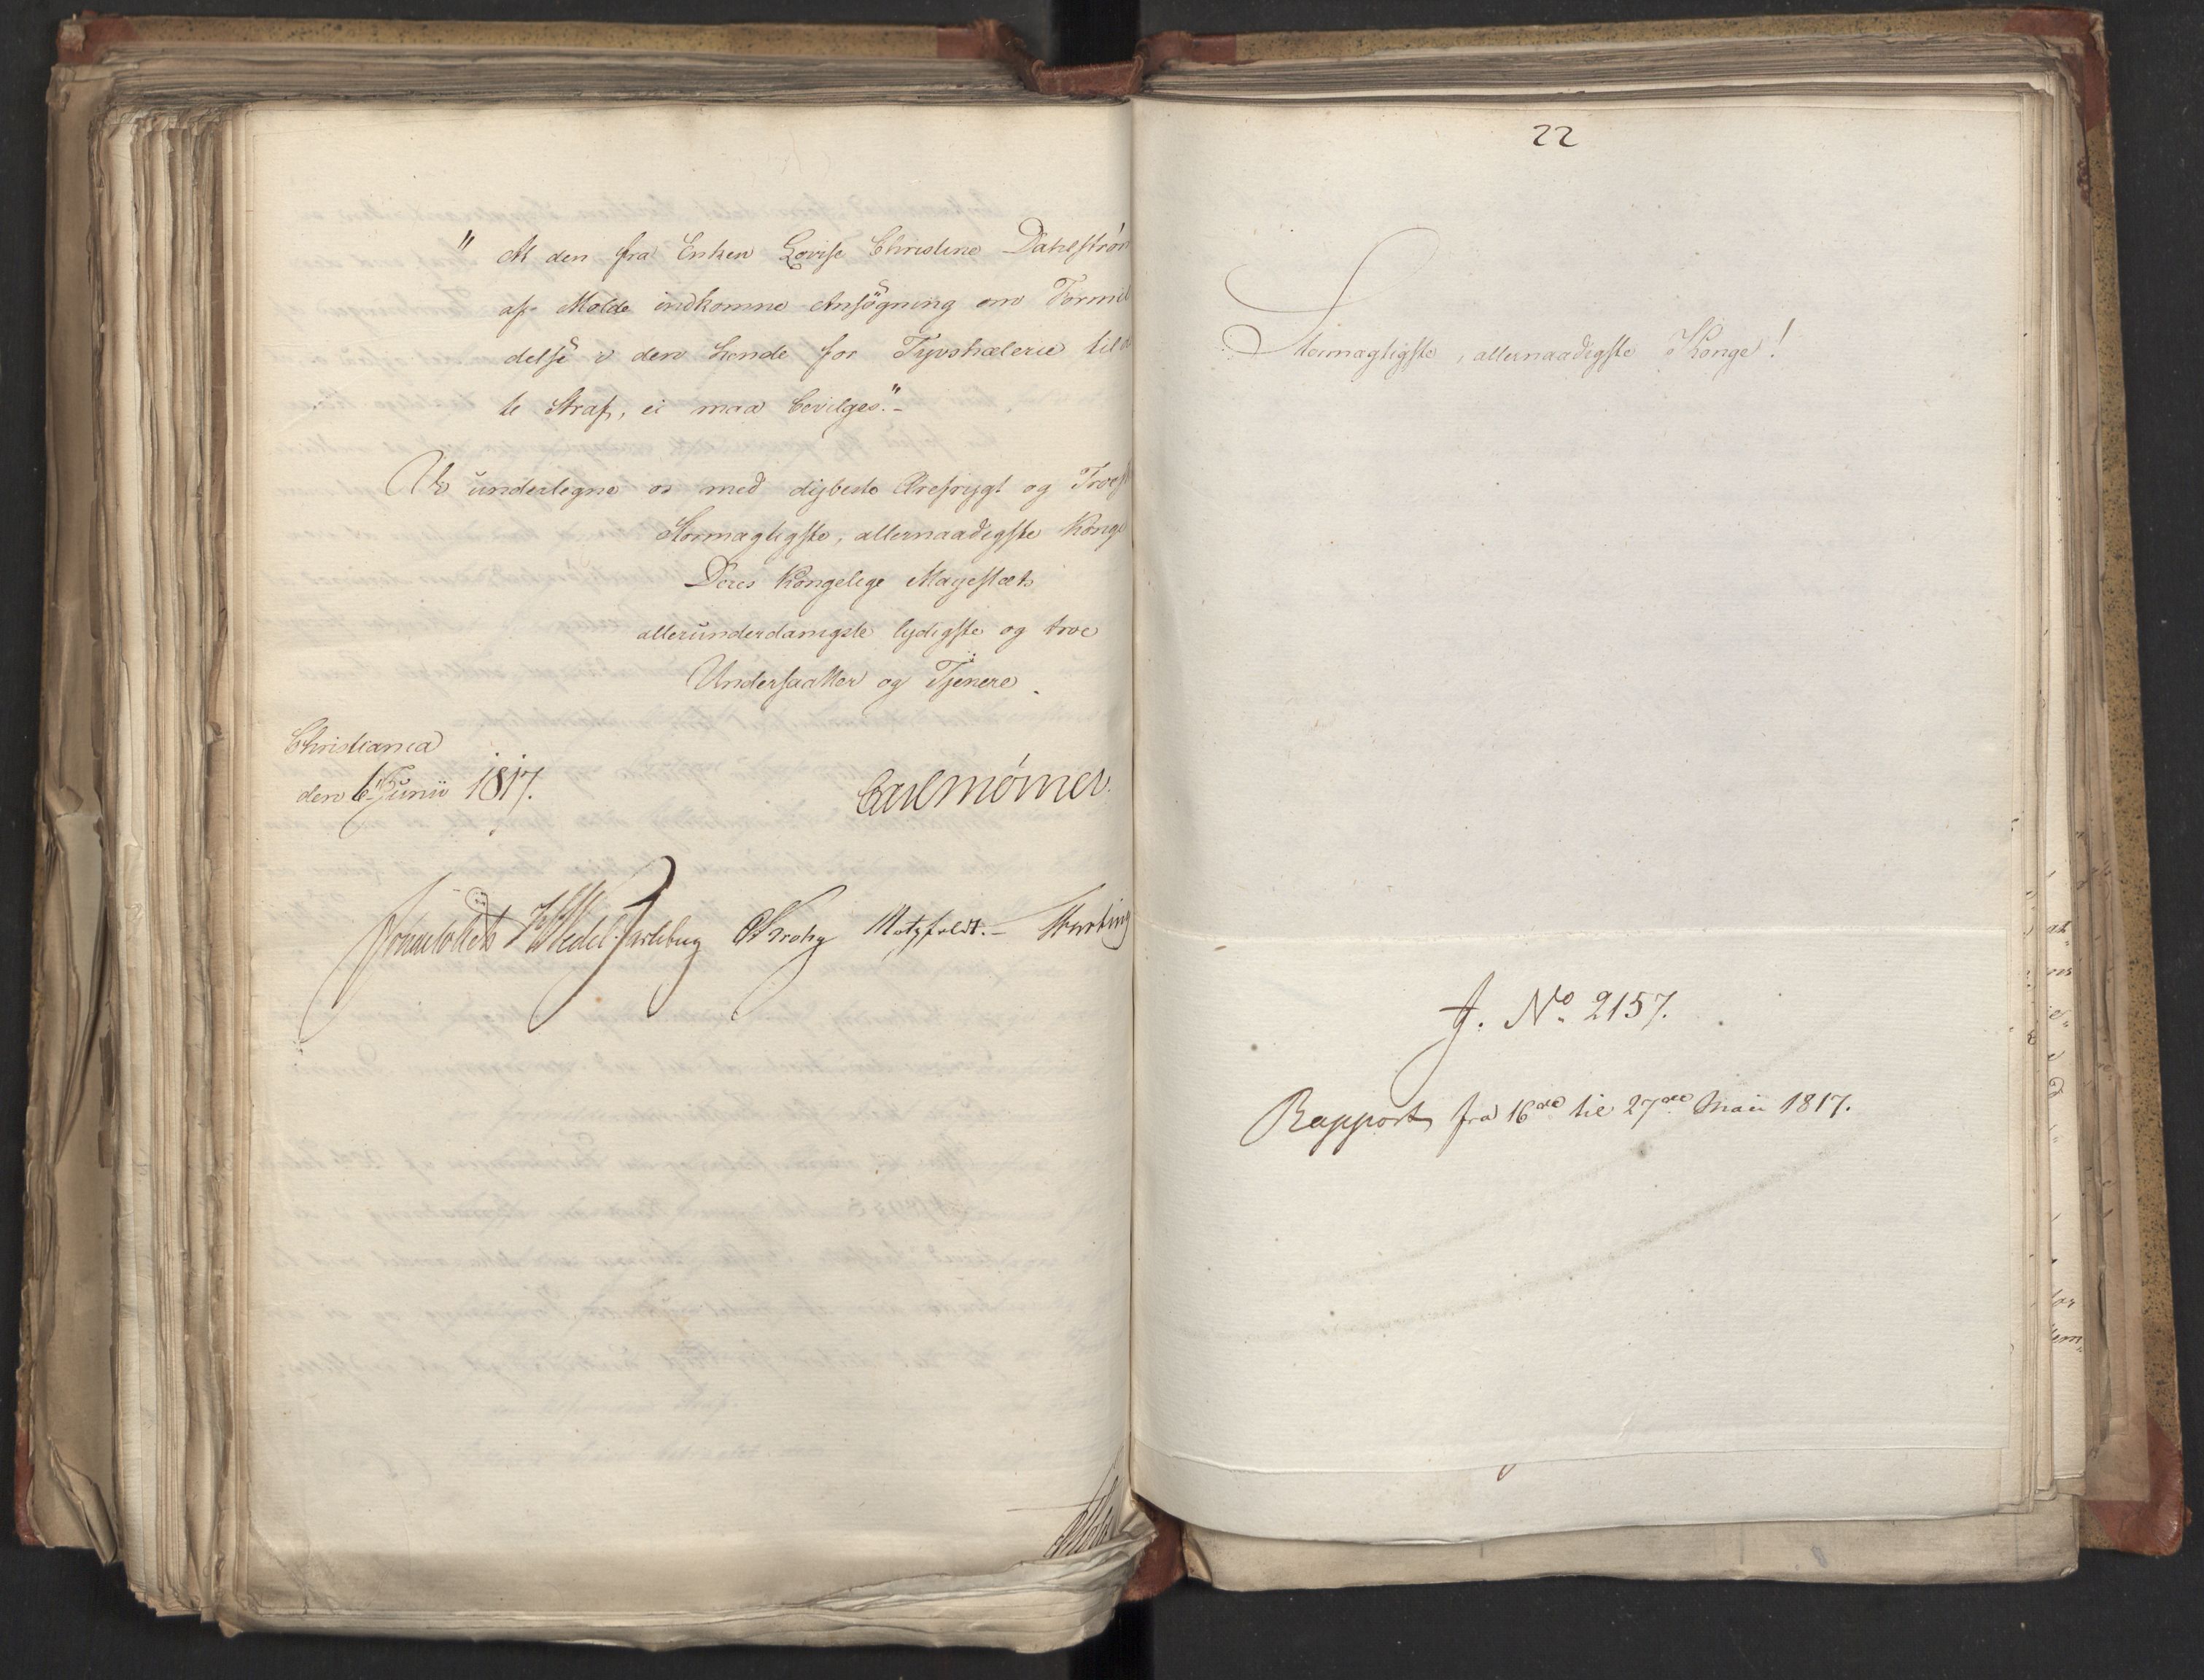 " At den fra Enken Lovise Christine Dahlstrøm
af Molde indkomne Ansøgning om Formil
delse i den hende for Tyvshælerie tild
te Straf, ei maa bevilges."-
Vi undertegne os med dybeste Ærefrygt og Troes
Stormægtigste, allernaadigste Konge
Deres Kongelige Majestæts
allerunderdanigste lydigste og troe
Undersaatter og Tjenere.
Christiania
den 6te Junii 1817.
Carl Mörner.
Sommerhielm HWedel Jarlsberg CKrohg Motzfeldt.-
22
Stormægtigste, allernaadigste Konge!
J. No. 2157.
Rapport fra 16de til 27de Maii 1817.